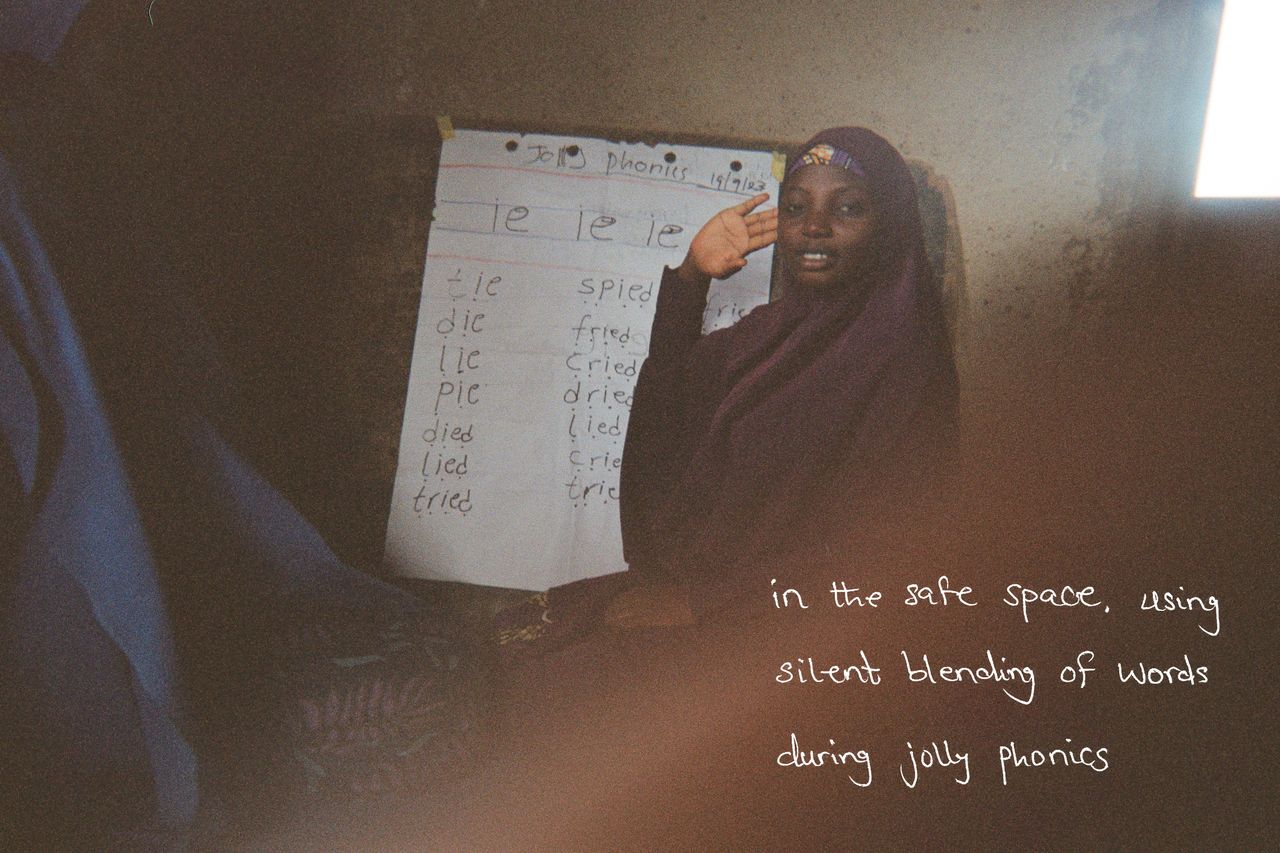 Jolly phonics
19/9/23
ie ie ie
tie
die
lie
pie
died
lied
tried
spied
fried
cried
dried
lied
crie
trie
in the safe space, using
silent blending of words
during jolly phonics